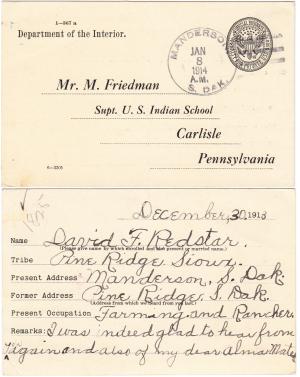 1—967 a
Department of the Interior.
MANDERSON
JAN
8
1914
A.M.
S. DAK.
Mr. M. Friedman
Supt. U. S. Indian School
Carlisle
Pennsylvania
6—3205
December, 30, 1913
Name David F. Redstar.
(Please give name by which enrolled and also present or married name.)
Tribe Pine Ridge Sioux.
Present Address Manderson, S. Dak.
Former Address Pine Ridge, S. Dak.
(Address from which we heard from you last.)
Present Occupation Farming and Rancher
Remarks: I was indeed glad to hear from
again and also of my dear Alma Mater